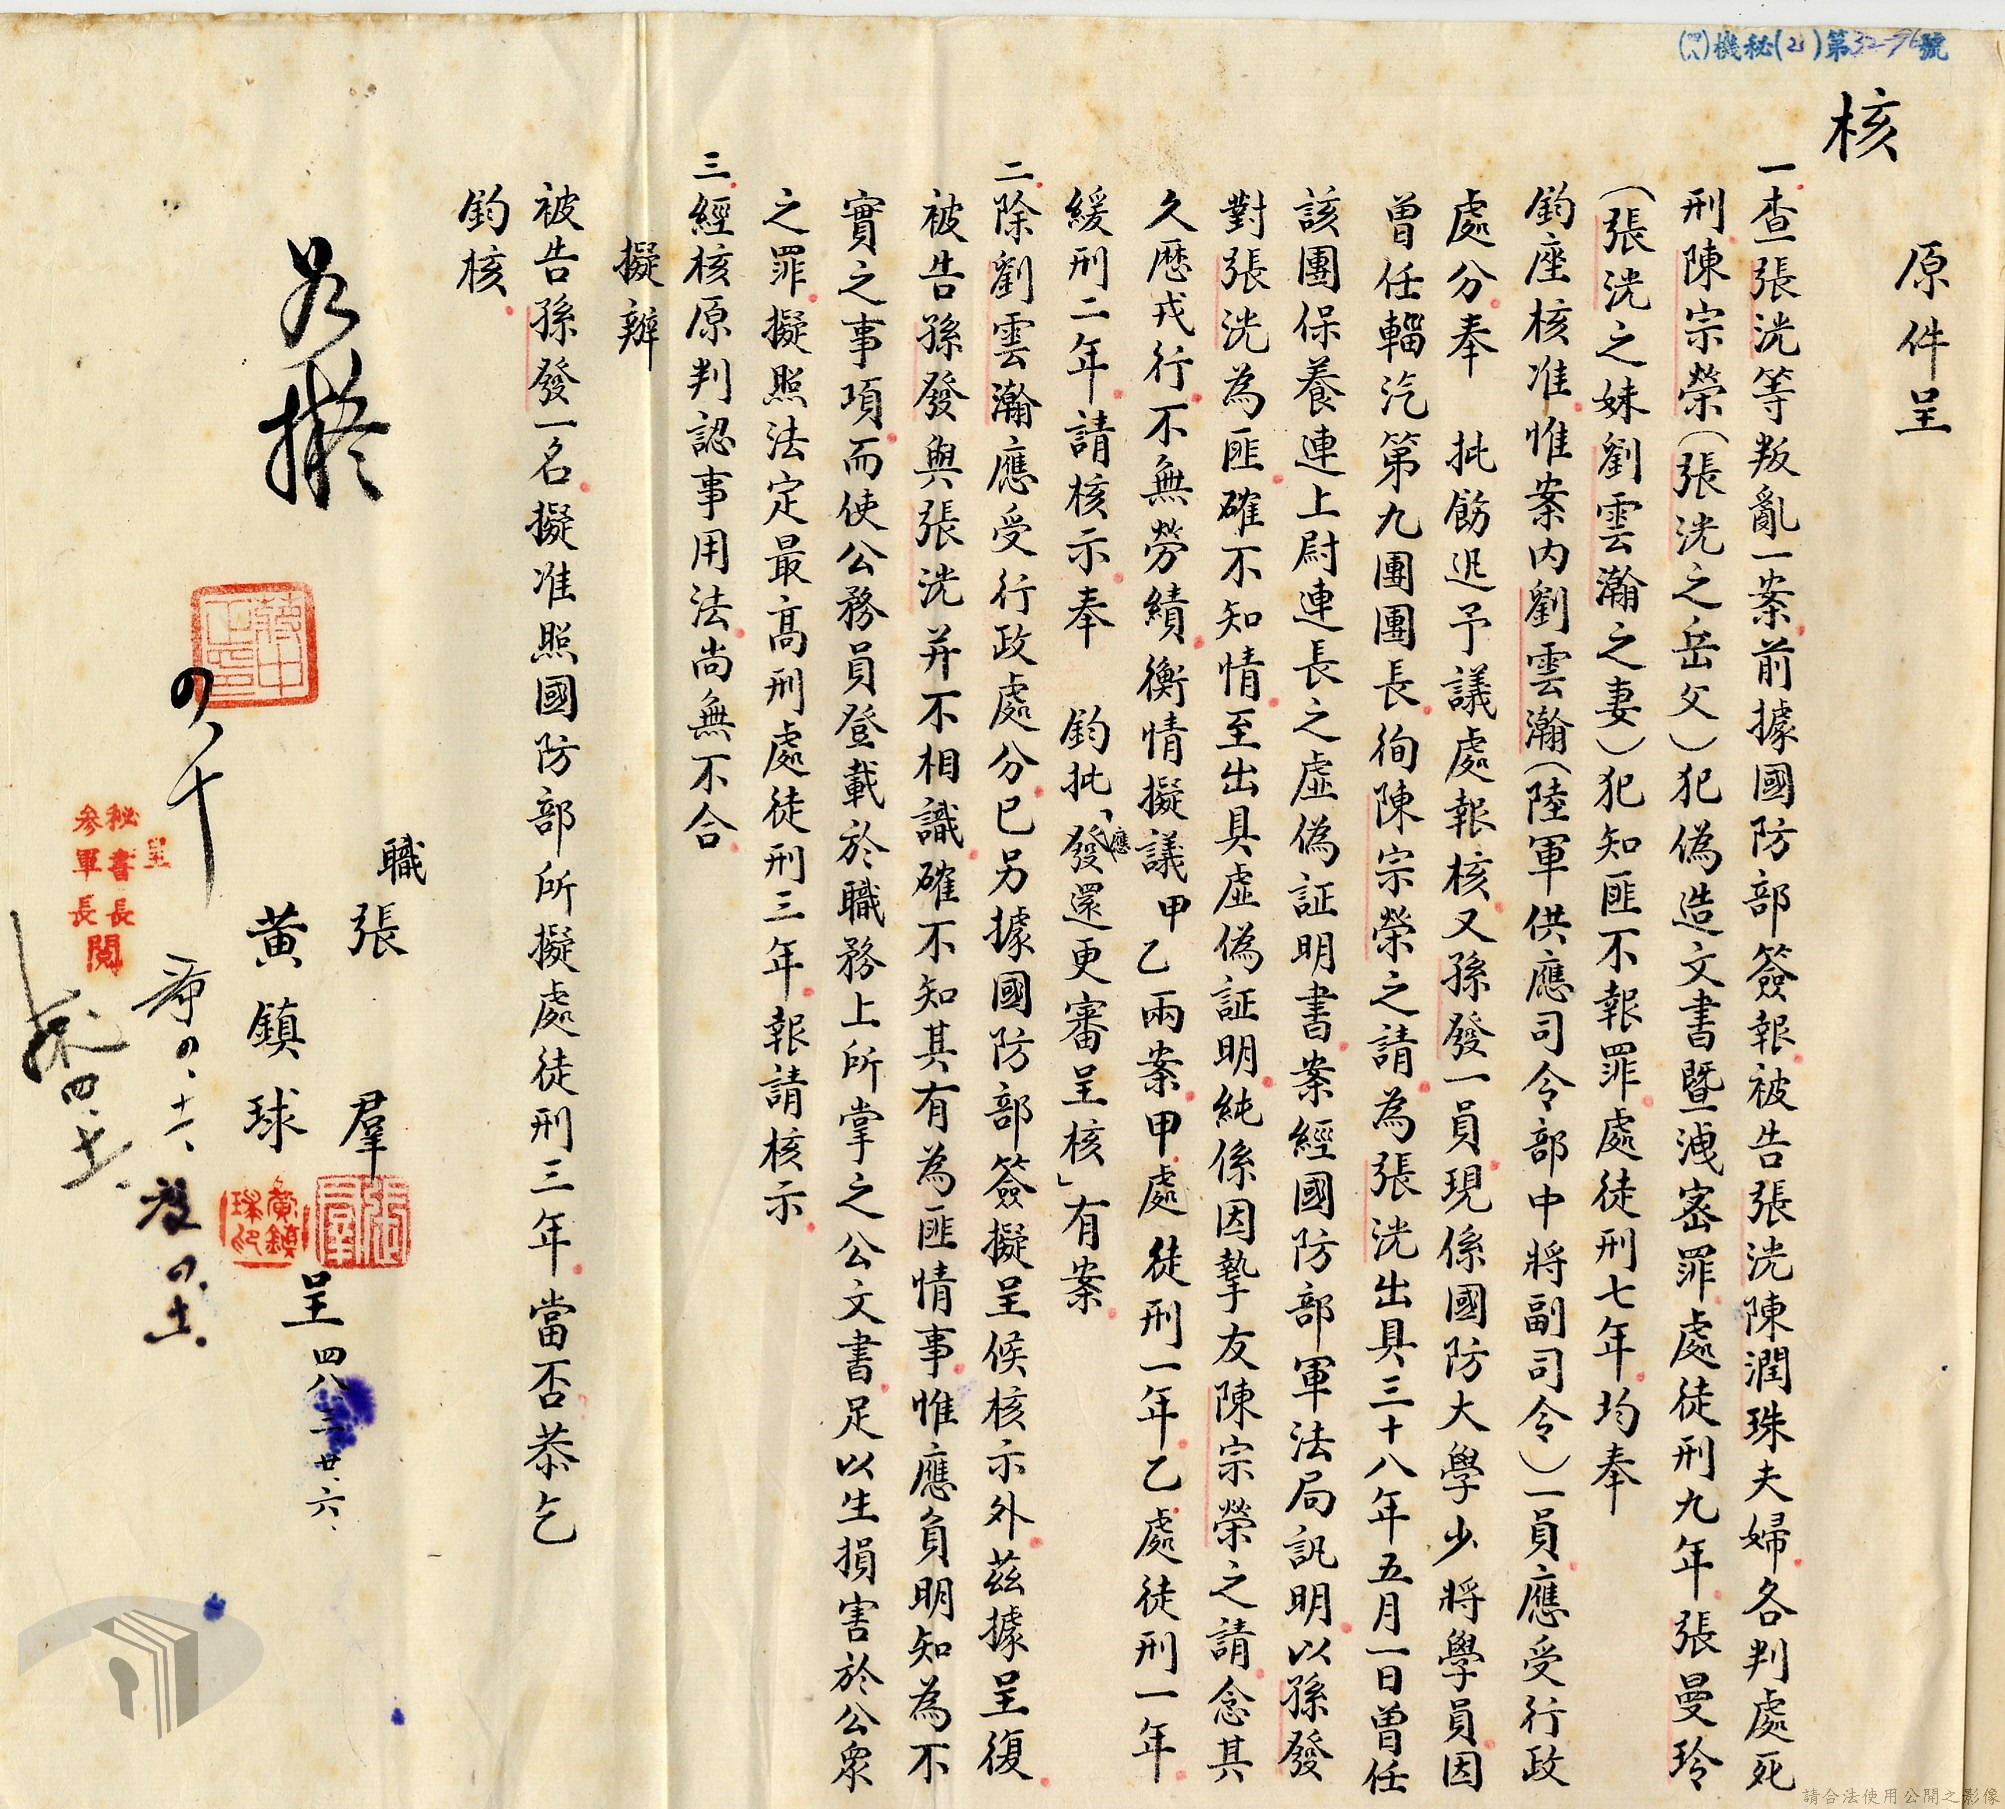 (四八)機秘(乙)第32-96號
核
原件呈
一查張浌等叛亂一案前據國防部簽報被告張浌陳潤珠夫婦各判處死
刑陳宗榮(張浌之岳父)犯偽造文書暨洩密罪處徒刑九年張曼玲
(張浌之妹劉雲瀚之妻)犯知匪不報罪處徒刑七年均奉
鈞座核准惟案内劉雲瀚(陸軍供應司令部中將副司令)一員應受行政
處分奉 批飭迅予議處報核又孫發一員現係國防大學少將學員因
曾任輜汽第九團團長徇陳宗榮之請為張浌出具三十八年五月一日曾任
該團保養連上尉連長之虛偽証明書案經國防部軍法局訊明以孫發
對張浌為匪確不知情至出具虛偽証明純係因摯友陳宗榮之請念其
久歷戎行不無勞績衡情擬議甲乙兩案甲處徒刑一年乙處徒刑一年
緩刑二年請核示奉 鈞批「應發還更審呈核」有案
二除劉雲瀚應受行政處分已另據國防部簽擬呈候核示外茲據呈復
被告孫發與張浌并不相識確不知其有為匪情事惟應負明知為不
實之事項而使公務員登載於職務上所掌之公文書足以生損害於公眾
之罪擬照法定最高刑處徒刑三年報請核示
三經核原判認事用法尚無不合
擬辦
被告孫發一名擬准照國防部所擬處徒刑三年當否恭乞
鈞核
職張 羣
黃鎮球
呈 四八、三、廿六、
如擬
蔣中正印
呈
秘書長
參軍長
閱
黃鎮球印
張羣
請合法使用公開之影像